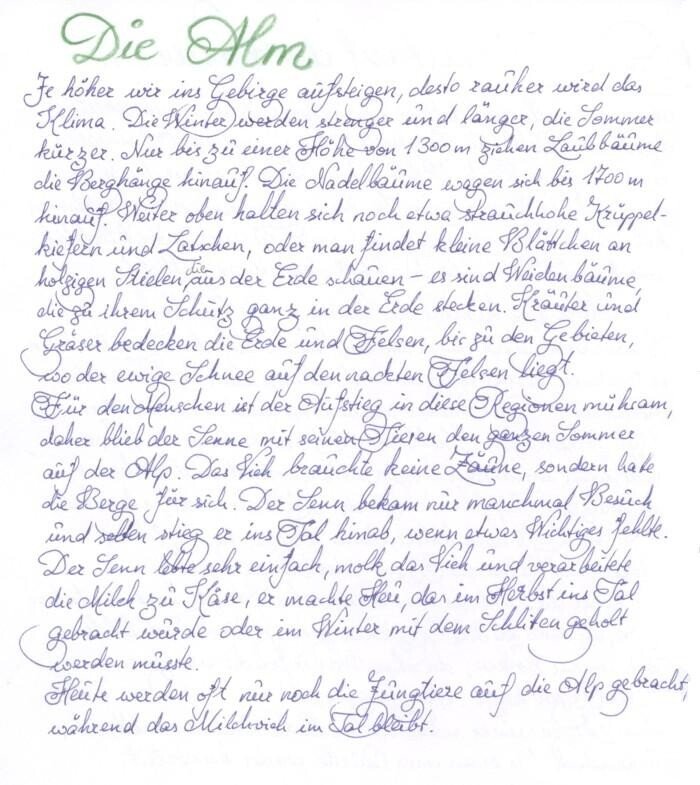 Die Alm
Je höher wir ins Gebirge aufsteigen, desto rauher wird das
Klima. Die Winter werden strenger und länger, die Sommer
kürzer. Nur bis zu einer Höhe von 1300 m ziehen Laubbäume
die Berghänge hinauf. Die Nadelbäume wagen sich bis 1700 m
hinauf. Weiter oben halten sich noch etwa strauchhohe Krüppel-
kiefern und Latschen, oder man findet kleine Blättchen an
holzigen Stielen, die aus der Erde schauen – es sind Weidenbäume,
die zu ihrem Schutz ganz in der Erde stecken. Kräuter und
Gräser bedecken die Erde und Felsen, bis zu den Gebieten,
wo der ewige Schnee auf den nackten Felsen liegt.
Für den Menschen ist der Aufstieg in diese Regionen mühsam,
daher blieb der Senne mit seinen Tieren den ganzen Sommer
auf der Alp. Das Vieh brauchte keine Zäune, sondern hate
die Berge für sich. Der Senn bekam nur manchmal Besuch
und selten stieg er ins Tal hinab, wenn etwas Wichtiges fehlte.
Der Senn lebte sehr einfach, molk das Vieh und verarbeitete
die Milch zu Käse, er machte Heu, das im Herbst ins Tal
gebracht wurde oder im Winter mit dem Schliten geholt
werden müsste.
Heute werden oft nur noch die Jungtiere auf die Alp gebracht,
während das Milchvieh im Tal bleibt.